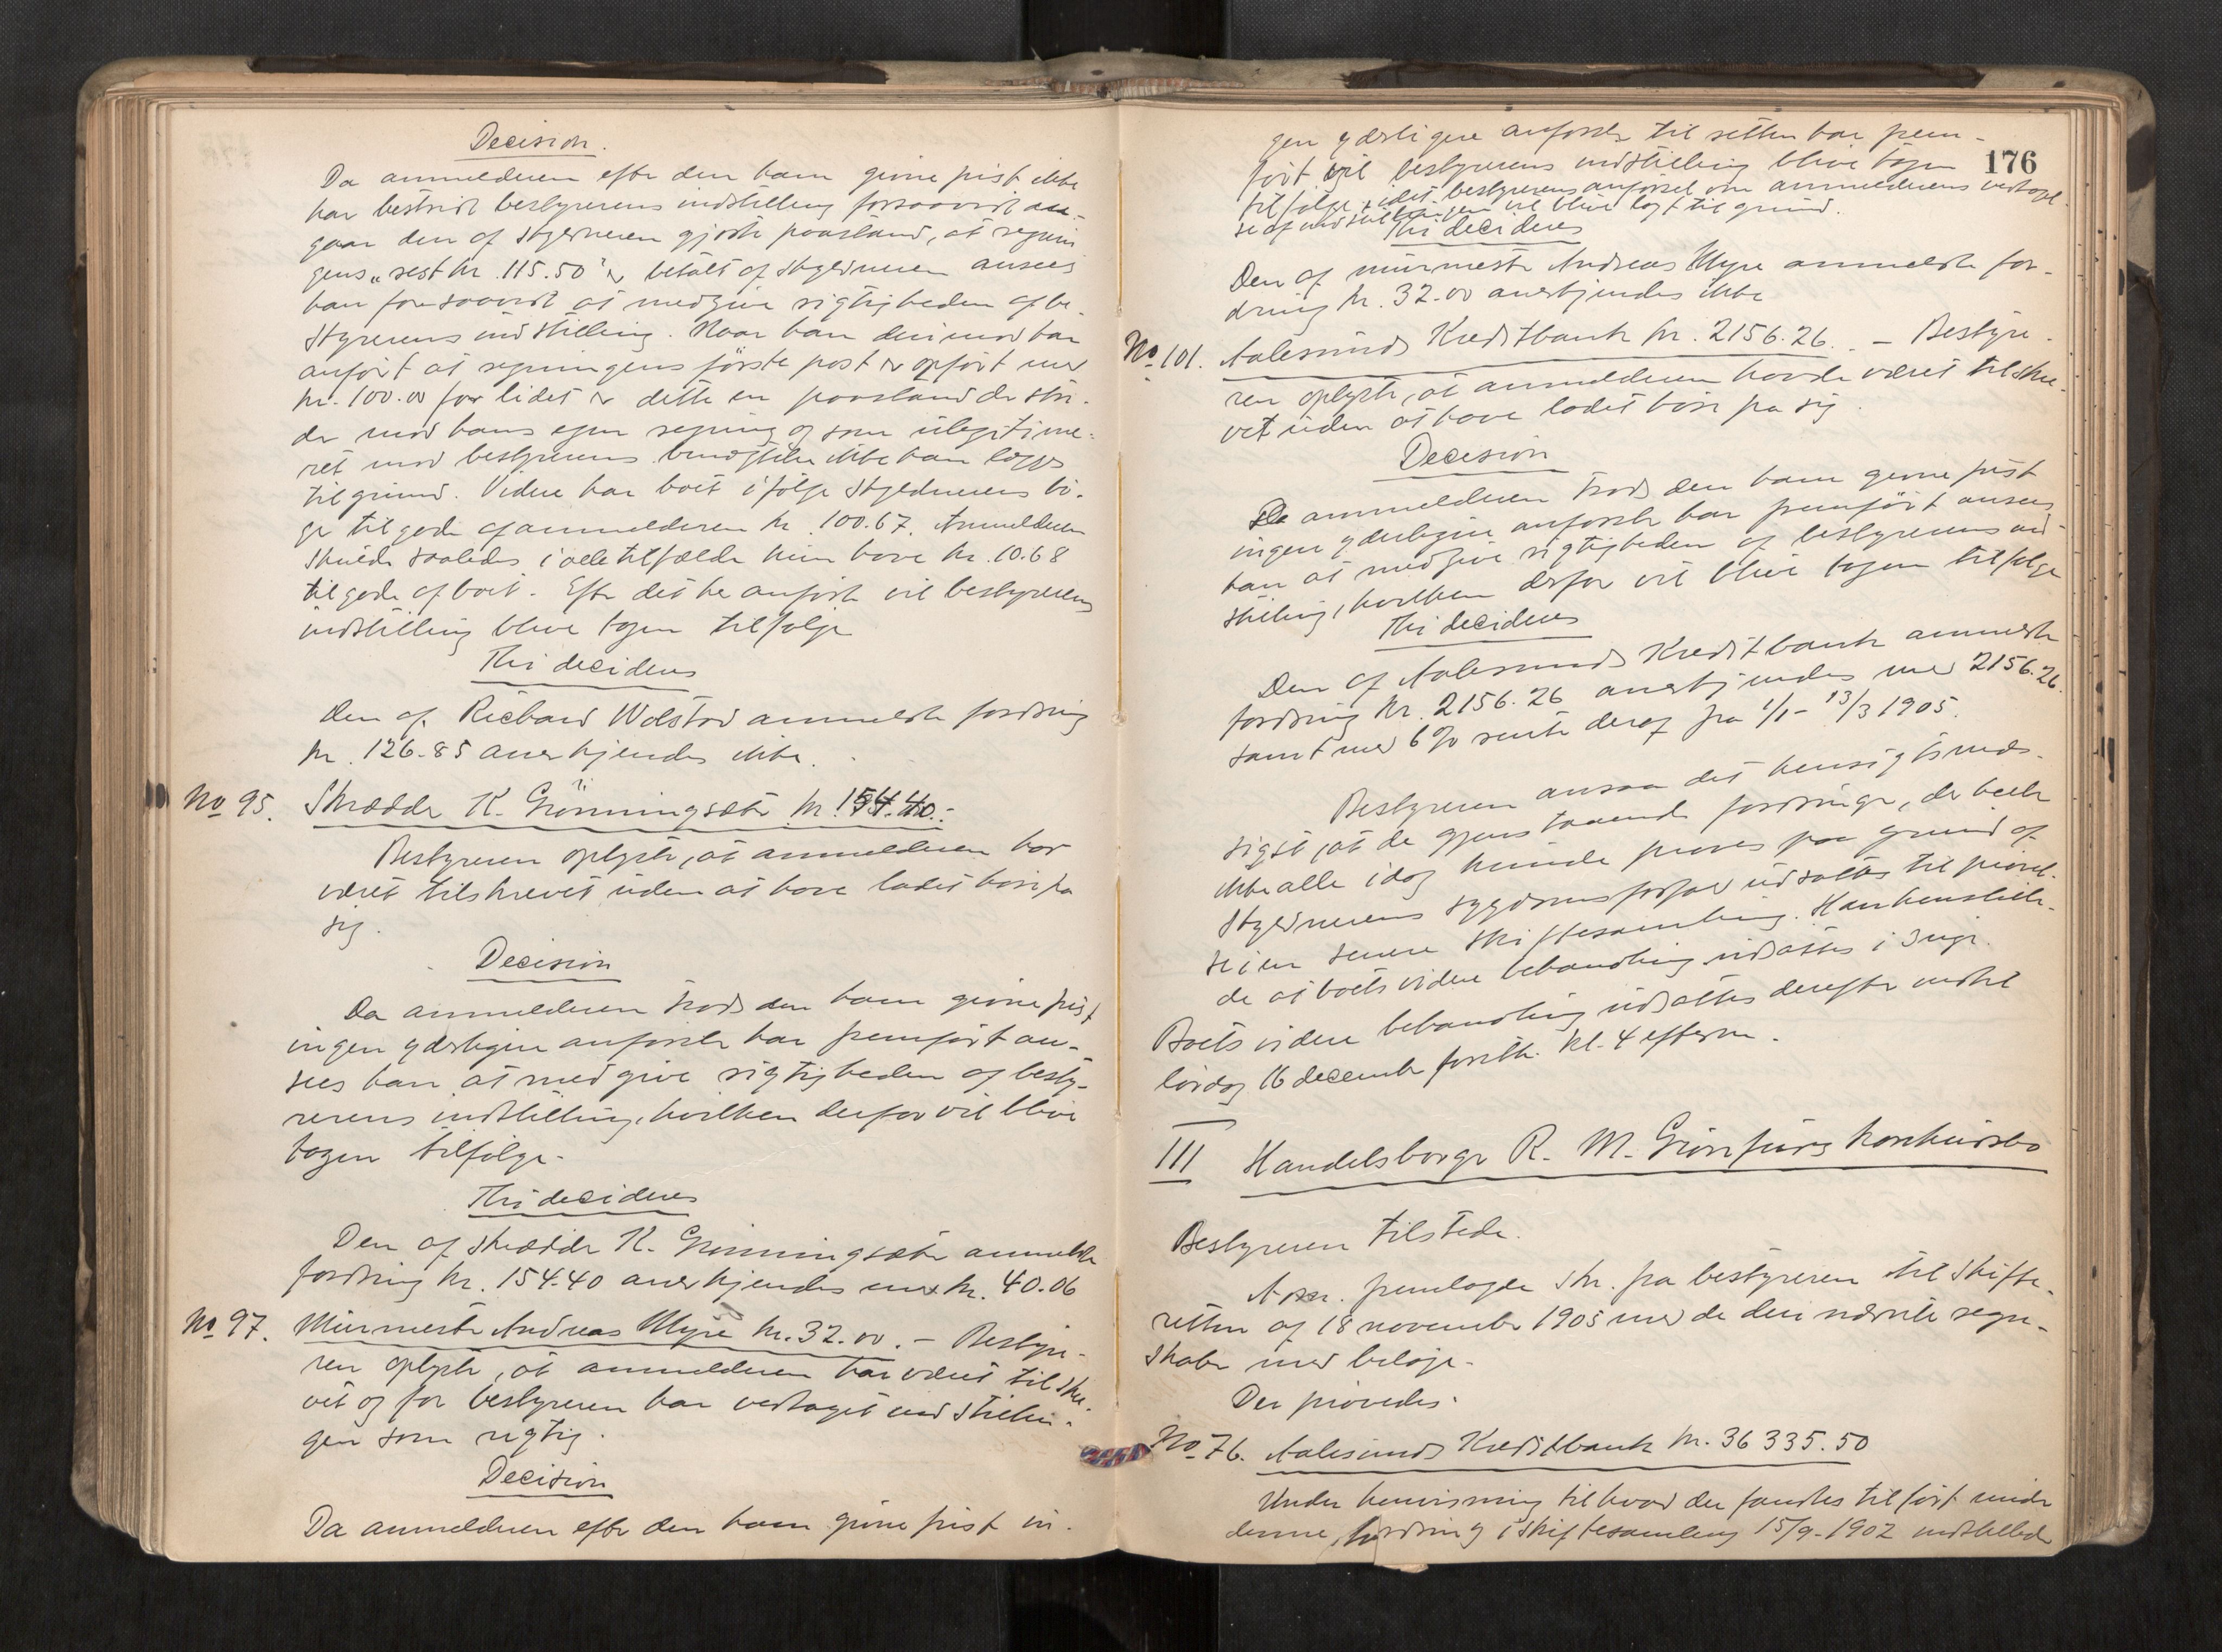 Decision.
Da anmelderen efter den ham givne frist ikke
har bestridt bestyrerens indstilling forsaavidt an-
gaar den af skyldneren gjorte paastand, at regnin
gens "rest kr. 115.50" er betalt af skyldneren ansees
han forsaavidt at medgive rigtigheden af be-
styrerens indstilling. Naar han derimod har
anført at regningens første post er opført med
kr. 100.00 for lidet er dette en paastand der stri-
der mod hans egen regning og som ulegitime-
ret mod bestyrerens benægtelse ikke kan lægges
til grund. Videre har boet ifølge skyldnerens bø-
ger tilgode af anmelderen kr. 100.67. Anmelderen
skulde saaledes i alle tilfælde kun have kr. 10.68
tilgode af boet. Efter det her anførte vil bestyrerens
indstilling blive tagen tilfølge
Thi decideres
Den af Richard Wolstad anmeldte fordring
kr. 126.85 anerkjendes ikke.
No 95. Skrædder K. Grønningsæter kr. 154.40.-
Bestyreren oplyste, at anmelderen har
været tilskrevet uden at have ladet høre fra
sig.
Decision
Da anmelderen trods den ham givne frist
ingen yderligere anførsler har fremført an-
sees han at medgive rigtigheden af besty-
rerens indstilling, hvilken derfor vil blive
tagen tilfølge.
Thi decideres
Den af skrædder K. Grønningsæter anmeldte
fordring kr. 154.40 anerkjendes med kr. 40.06
No 97. Murmester Andreas Myre kr. 32.00. - Bestyre-
ren oplyste, at anmelderen har været tilskre-
vet og for bestyreren har vedtaget indstillin-
gen som rigtig.
Decision
Da anmelderen efter den ham givne frist in-
176
gen yderligere anførsler til retten har frem-
ført vil bestyrerens indstilling blive tagen
tilfølge, idet bestyrerens anførsel om anmelderens vedtagel-
se af indstillingen vil blive lagt til grund.
Thi decideres
Den af murmester Andreas Myre anmeldte for-
dring kr. 32.00 anerkjendes ikke
No 101. Aalesunds Kreditbank kr. 2156.26. - Bestyre-
ren oplyste, at anmelderen havde været tilskre-
vet uden at have ladet høre fra sig.
Decision
Da anmelderen trods den ham givne frist
ingen yderligere anførsler har fremført ansees
han at medgive rigtigheden af bestyrerens ind-
stilling, hvilken derfor vil blive tagen tilfølge
Thi decideres
Den af Aalesunds Kreditbank anmeldte
fordring kr. 2156.26 anerkjendes med 2156.26.
samt med 6% rente deraf fra 1/1 - 13/3 1905.
Bestyreren ansaa det hensigtsmæs-
sigst, at de gjenstaaende fordringer, der heller
ikke alle idag kunde prøves paa grund af
skyldnerens sygdomsforfald udsattes til prøvel-
se i en senere skiftesamling. Han henstille-
de at boets videre behandling udsattes i 3 uger.
Boets videre behandling udsattes derefter indtil
lørdag 16 december førstk. kl. 4 efterm.
III Handelsborger R. M. Grønfurs konkursbo
Bestyreren tilstede.
Adm. fremlagde skr. fra bestyreren til skifte-
retten af 18 november 1905 med de deri nævnte regn-
skaber med bilage.
Der prøvedes.
No 76. Aalesunds Kreditbank kr. 36335.50
Under henvisning til hvad der fandtes tilført under
denne fordring i skiftesamling 15/9-1902 indstillede